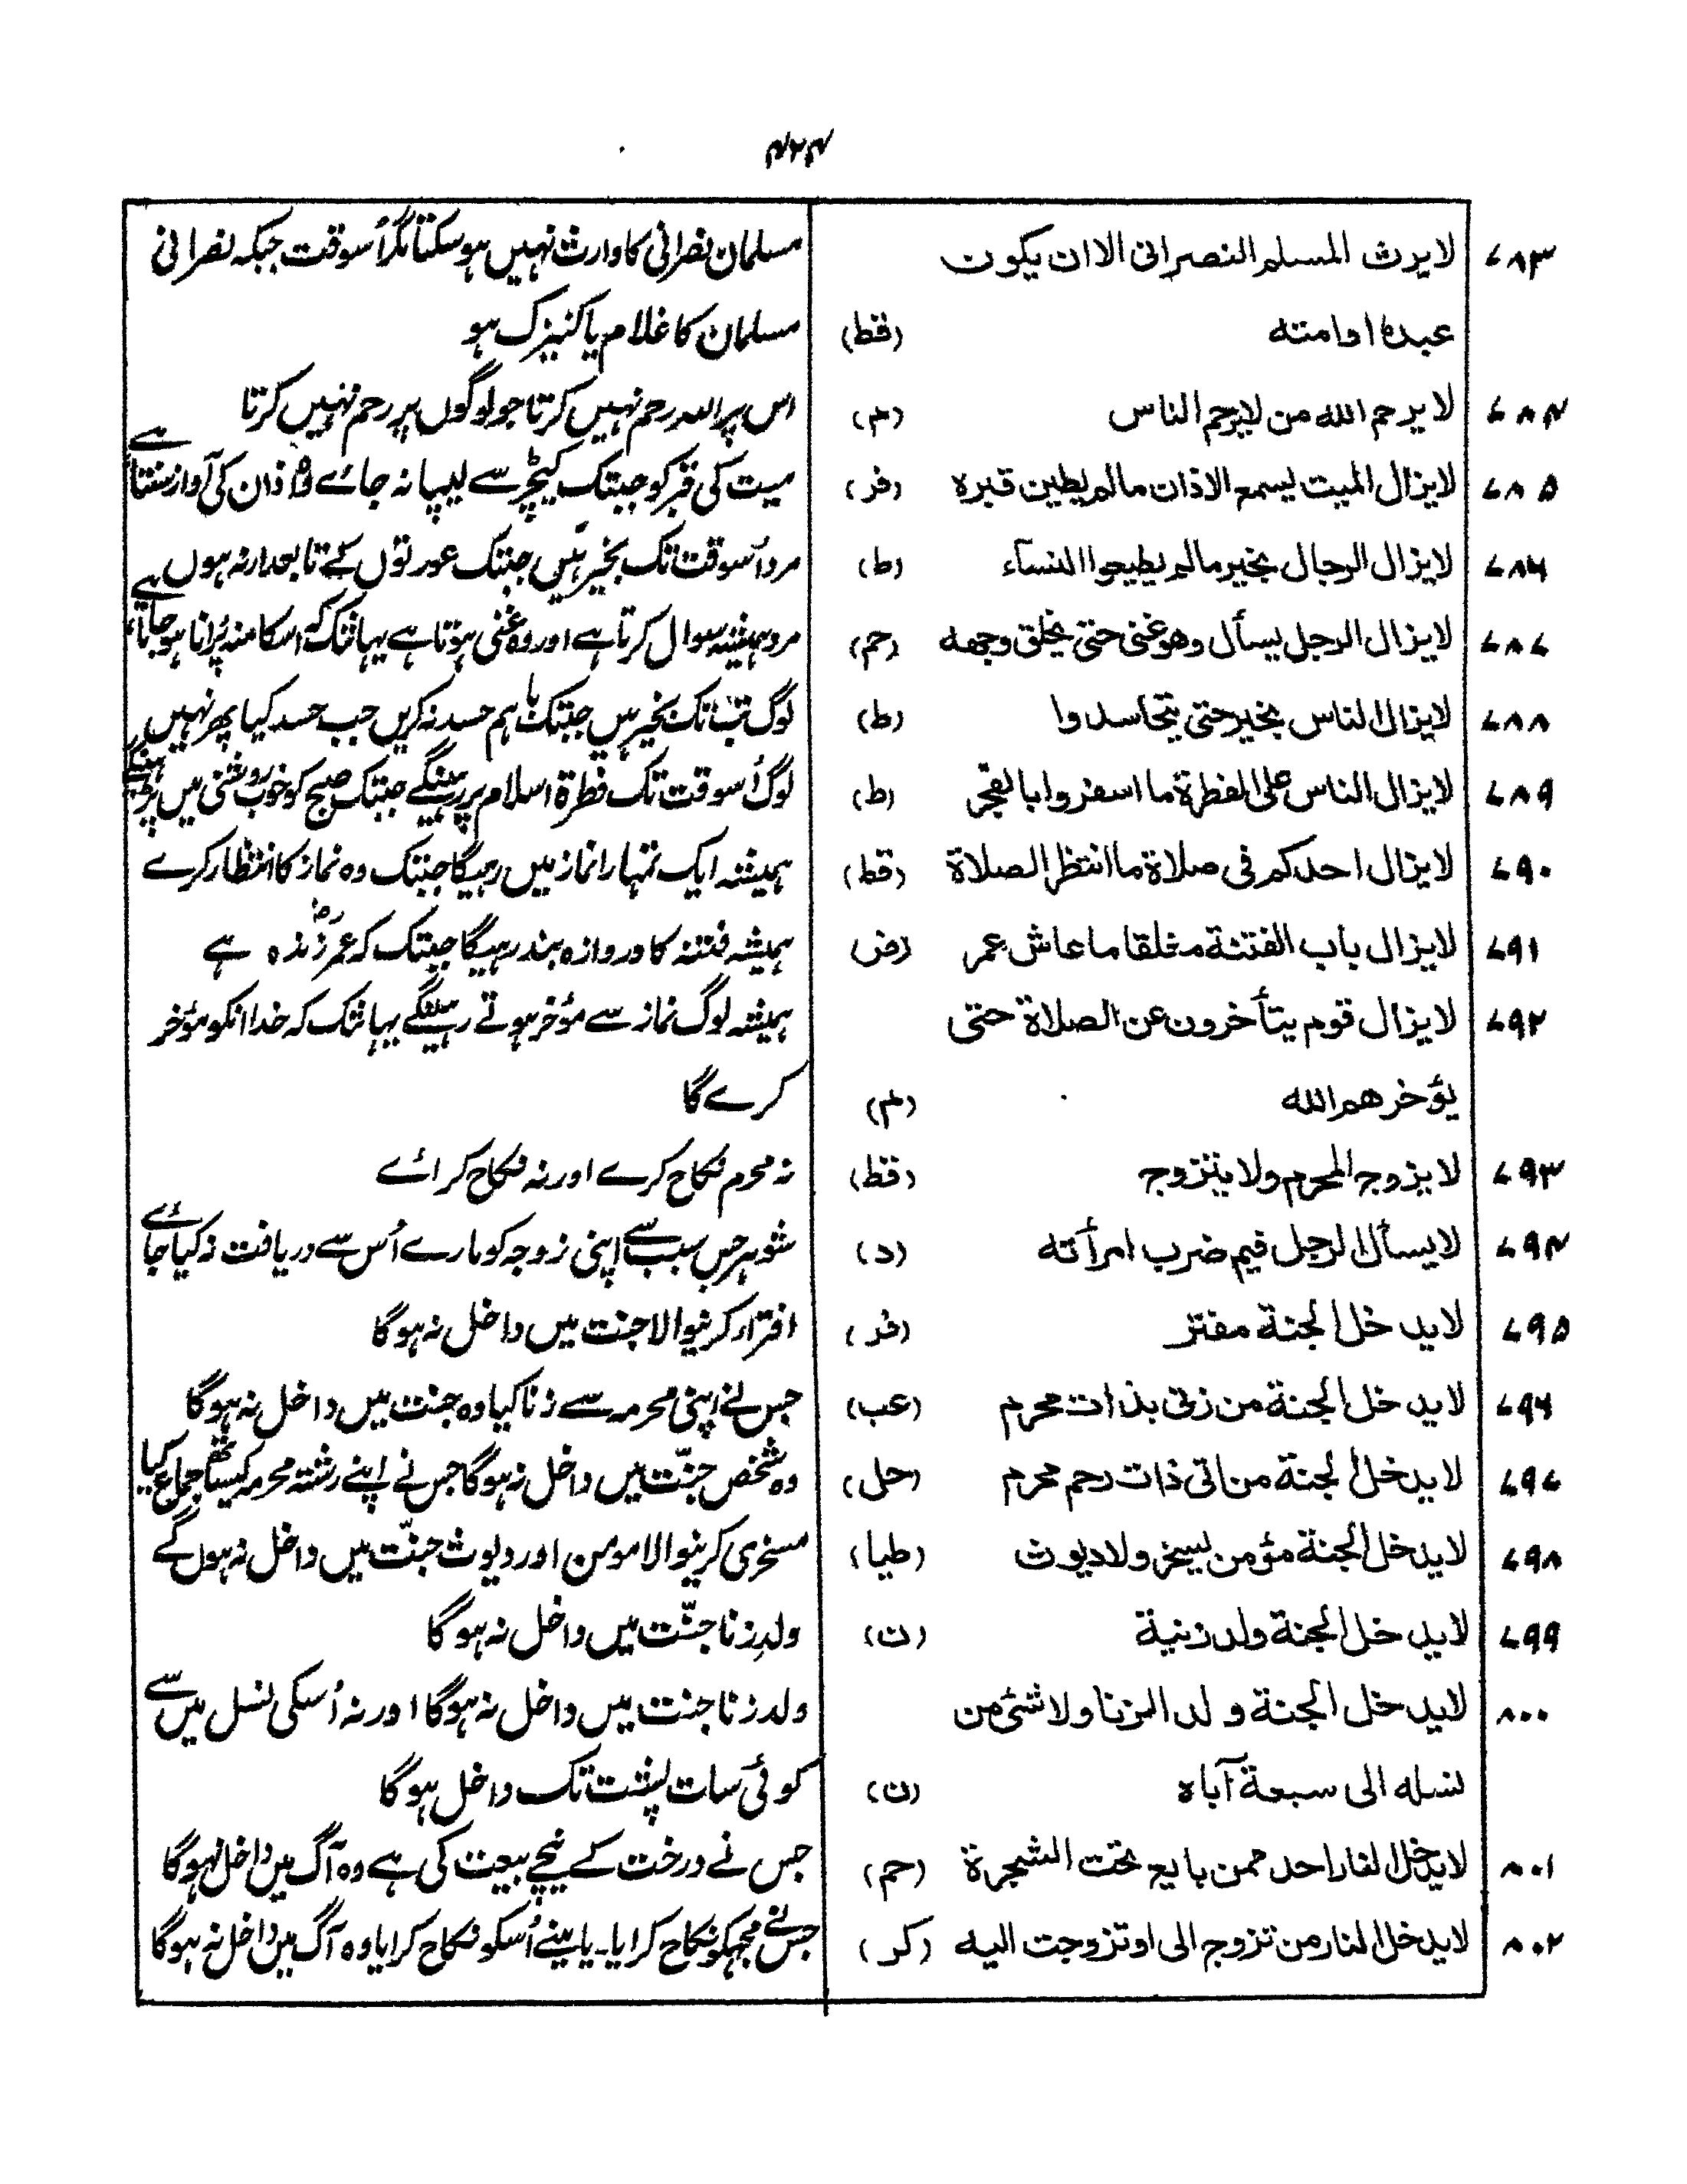 ۴۲۴
۷۸۳ لا يرث المسلم النصرانى الا ان يكون مسلمان نصرانی کا وارث نہیں ہو سکتا مگر اُسوقت جبکہ نصرانی
عبده او امته (قط) مسلمان کا غلام یا کنیزک ہو
۷۸۴ لا يرحم الله من لا يرحم الناس (م) اس پر اللہ رحم نہیں کرتا جو لوگوں پر رحم نہیں کرتا
۷۸۵ لايزال الميت يسمع الاذان مالم يطين قبره (فر) میت کی قبر کو جبتک کیچڑ سے لیپا نہ جائے وہ اذان کی آواز سنتا ہے
۷۸۶ لايزال الرجال بخير مالم يطيعوا النسآء (ط) مرد اُسوقت تک بخیر ہیں جبتک عورتوں کے تابعدار نہ ہوں
۷۸۷ لايزال الرجل يسأل وهو غنى حتى يخلق وجهه (حم) مرد ہمیشہ سوال کرتا ہے اور وہ غنی ہوتا ہے یہانتک کہ اسکا منہ پُرانا ہو جاتا ہے
۷۸۸ لايزال الناس بخير حتى يتحاسدوا (ط) لوگ تب تک بخیر ہیں جبتک باہم حسد نہ کریں جب حسد کیا پھر نہیں
۷۸۹ لايزال الناس على الفطرة ما اسفروا بالفجر (ط) لوگ اُسوقت تک فطرۃ اسلام پر رہینگے جبتک صبح کو خوب روشنی میں پڑہینگے
۷۹۰ لايزال احدكم فى صلاة ما انتظر الصلاة (قط) ہمیشہ ایک تمہارا نماز میں رہیگا جبتک وہ نماز کا انتظار کرے
۷۹۱ لايزال باب الفتنة مغلقا ما عاش عمر (فر) ہمیشہ فتنہ کا دروازہ بند رہیگا جبتک کہ عمرؓ زندہ ہے
۷۹۲ لايزال قوم يتأخرون عن الصلاة حتى ہمیشہ لوگ نماز سے مؤخر ہوتے رہینگے یہانتک کہ خدا انکو مؤخر
يؤخرهم الله (م) کرے گا
۷۹۳ لا يزوج المحرم ولا يتزوج (قط) نہ محرم نکاح کرے اور نہ نکاح کرائے
۷۹۴ لا يسأل الرجل فيم ضرب امرأته (د) شوہر جس سبب سے اپنی زوجہ کو مارے اُس سے دریافت نہ کیا جائے
۷۹۵ لا يدخل الجنة مفتر (فر) افتراء کرنیوالا جنت میں داخل نہ ہوگا
۷۹۶ لا يدخل الجنة من زنى بذات محرم (عب) جس نے اپنی محرمہ سے زنا کیا وہ جنت میں داخل نہ ہوگا
۷۹۷ لا يدخل الجنة من اتى ذات رحم محرم (حل) وہ شخص جنّت میں داخل نہ ہوگا جس نے اپنے رشتہ محرمہ کیساتھ جماع کیا
۷۹۸ لا يدخل الجنة مؤمن يسخر ولا ديوث (طيا) مسخری کرنیوالا مومن اور دیوث جنّت میں داخل نہ ہوں گے
۷۹۹ لا يدخل الجنة ولد زنية (ن) ولدِ زنا جنّت میں داخل نہ ہوگا
۸۰۰ لا يدخل الجنة ولد الزنا ولا شئ من ولد زنا جنت میں داخل نہ ہوگا اور نہ اُسکی نسل میں سے
نسله الى سبعة آباه (ن) کوئی سات پشت تک داخل ہوگا
۸۰۱ لا يدخل النار احد ممن بايع تحت الشجرة (حم) جس نے درخت کے نیچے بیعت کی ہے وہ آگ میں داخل نہوگا
۸۰۲ لا يدخل النار من تزوج الى او تزوجت اليه (كر) جس نے مجہکو نکاح کرایا۔ یا مینے اُسکو نکاح کرایا وہ آگ میں داخل نہ ہوگا